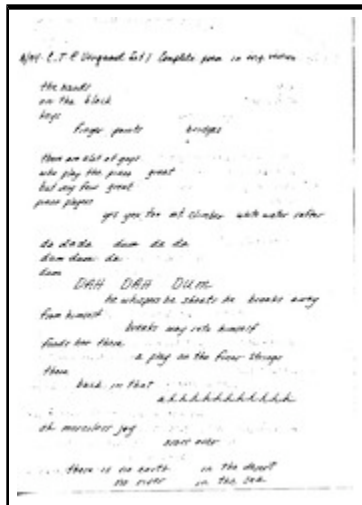 Complete poem in orig. version
the hands
on the black
keys
finger paints bridges
there are alot of guys
who play the piano great
but very few great
piano players
yes yes, for mt climber white water rafter
da da da dum da da
dum dum da
dum
DAH DAH DUM
he whispes he shouts he breaks away
from himself
breaks way into himself
finds her there
a play on the finer strings
there
back in that
ahhhhhhhhhhh
oh merciless joy
over over
there is no earth in the desert
no river in the sea